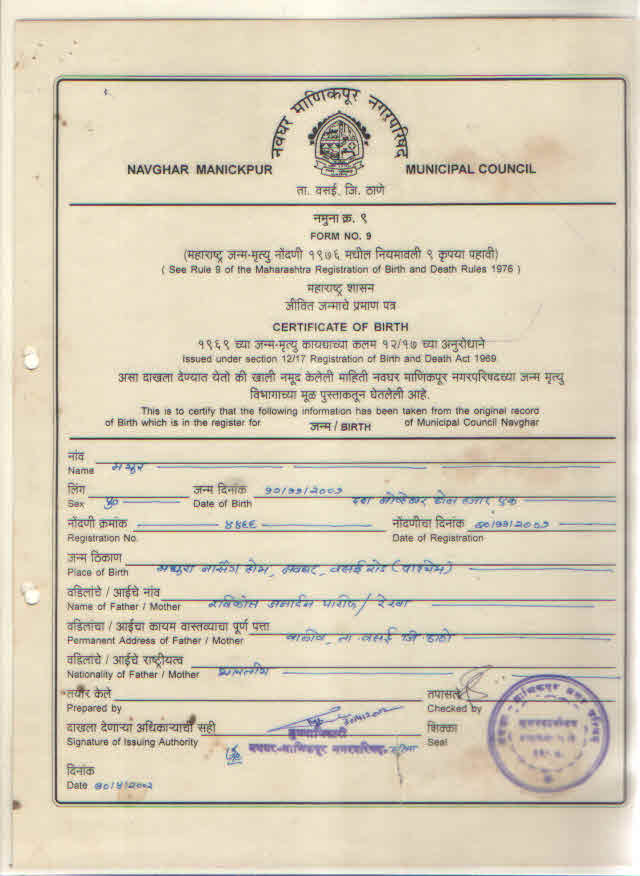 नवघर माणिकपूर नगरपरिषद
NAVGHAR MANICKPUR MUNICIPAL COUNCIL
ता. वसई, जि. ठाणे
नमुना क्र. ९
FORM NO. 9
(महाराष्ट्र जन्म-मृत्यु नोंदणी १९७६ मधील नियमावली ९ कृपया पहावी)
( See Rule 9 of the Maharashtra Registration of Birth and Death Rules 1976 )
महाराष्ट्र शासन
जीवित जन्माचे प्रमाण पत्र
CERTIFICATE OF BIRTH
१९६९ च्या जन्म-मृत्यु कायद्याच्या कलम १२/१७ च्या अनुरोधाने
Issued under section 12/17 Registration of Birth and Death Act 1969
असा दाखला देण्यात येतो की खाली नमूद केलेली माहिती नवघर माणिकपूर नगरपरिषदच्या जन्म मृत्यु
विभागाच्या मूळ पुस्तकातून घेतलेली आहे.
This is to certify that the following information has been taken from the original record
of Birth which is in the register for जन्म / BIRTH of Municipal Council Navghar
नांव
Name मयुर
लिंग जन्म दिनांक १०/११/२००१
Sex पु० Date of Birth दश नोव्हेंबर दोन हजार एक
नोंदणी क्रमांक ४४६६ नोंदणीचा दिनांक
Registration No. Date of Registration
जन्म ठिकाण
Place of Birth नर्सिंग होम, नवघर, वसई रोड (पश्चिम)
वडिलांचे / आईचे नांव
Name of Father / Mother जनार्दन / रेखा
वडिलांचा / आईचा कायम वास्तव्याचा पूर्ण पत्ता
Permanent Address of Father / Mother वालीव, ता वसई जि ठाणे
वडिलांचे / आईचे राष्ट्रीयत्व
Nationality of Father / Mother भारतीय
तयार केले तपासले
Prepared by Checked by
दाखला देणाऱ्या अधिकाऱ्याची सही शिक्का
Signature of Issuing Authority Seal
नवघर-माणिकपूर नगरपरिषद,
दिनांक
Date